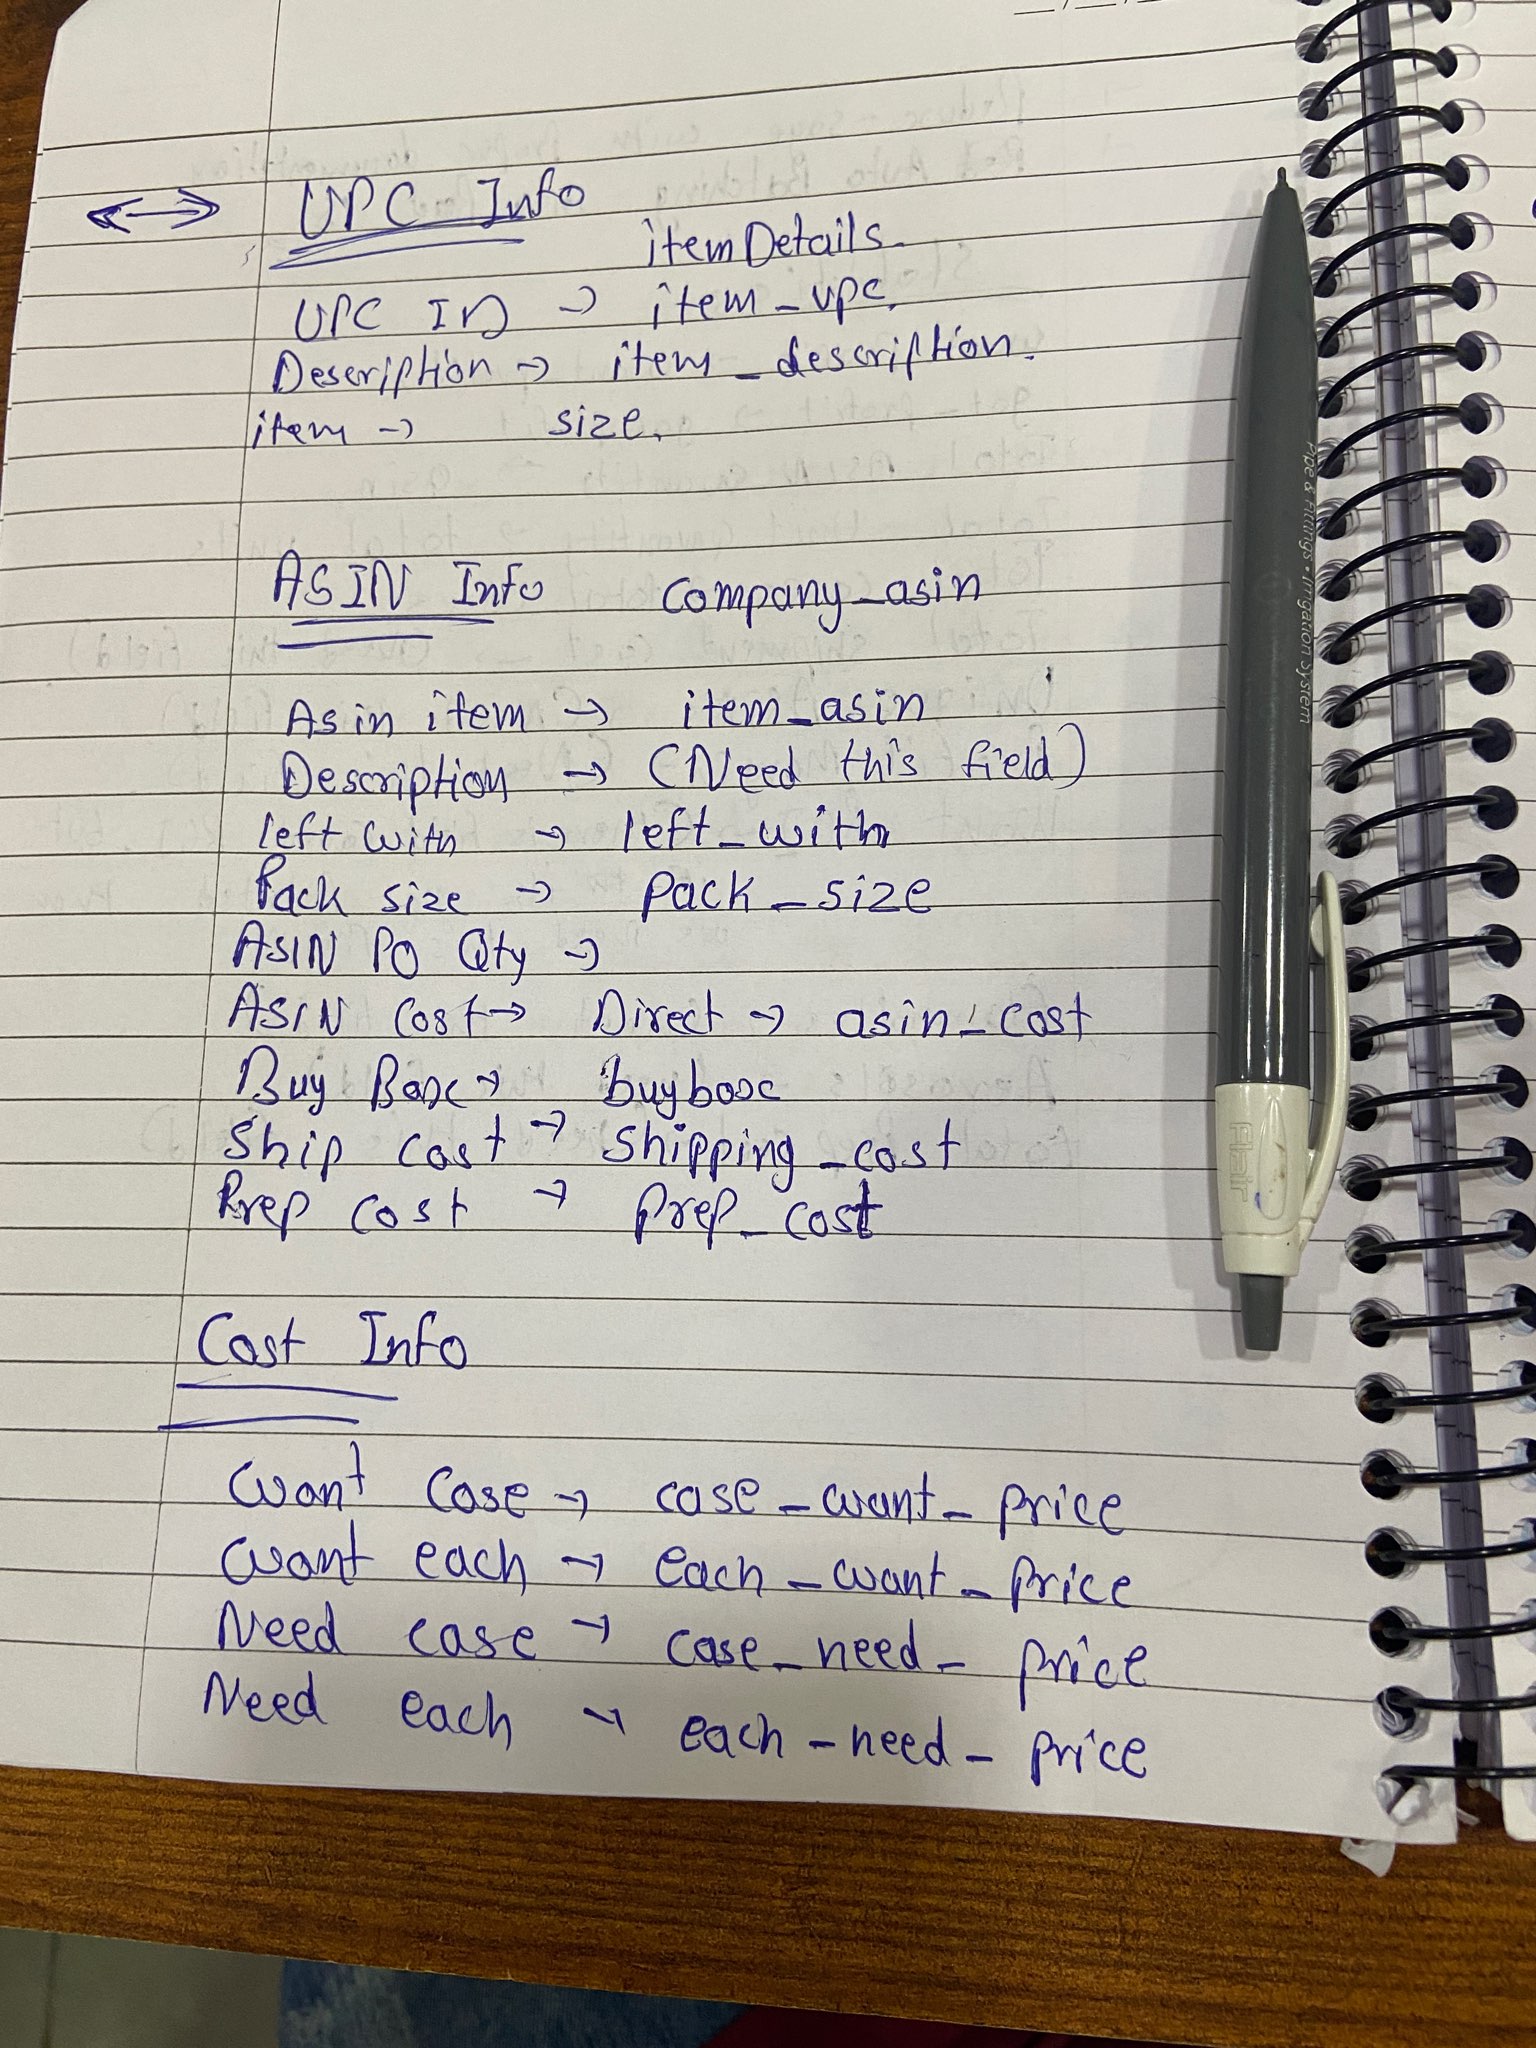 UPC Info
itemDetails.
UPC ID → item_upc.
Description → item_description.
item → size.
ASIN Info company_asin
Asin item → item_asin
Description → (Need this field)
left with → left_with
Pack size → pack_size
ASIN PO Qty →
ASIN Cost → Direct → asin_cost
Buy Box → buybox
Ship cost → shipping_cost
Prep cost → prep_cost
Cost Info
Want Case → case_want_price
Want each → each_want_price
Need case → case_need_price
Need each → each_need_price
Pipe & Fittings • Irrigation System
Flair